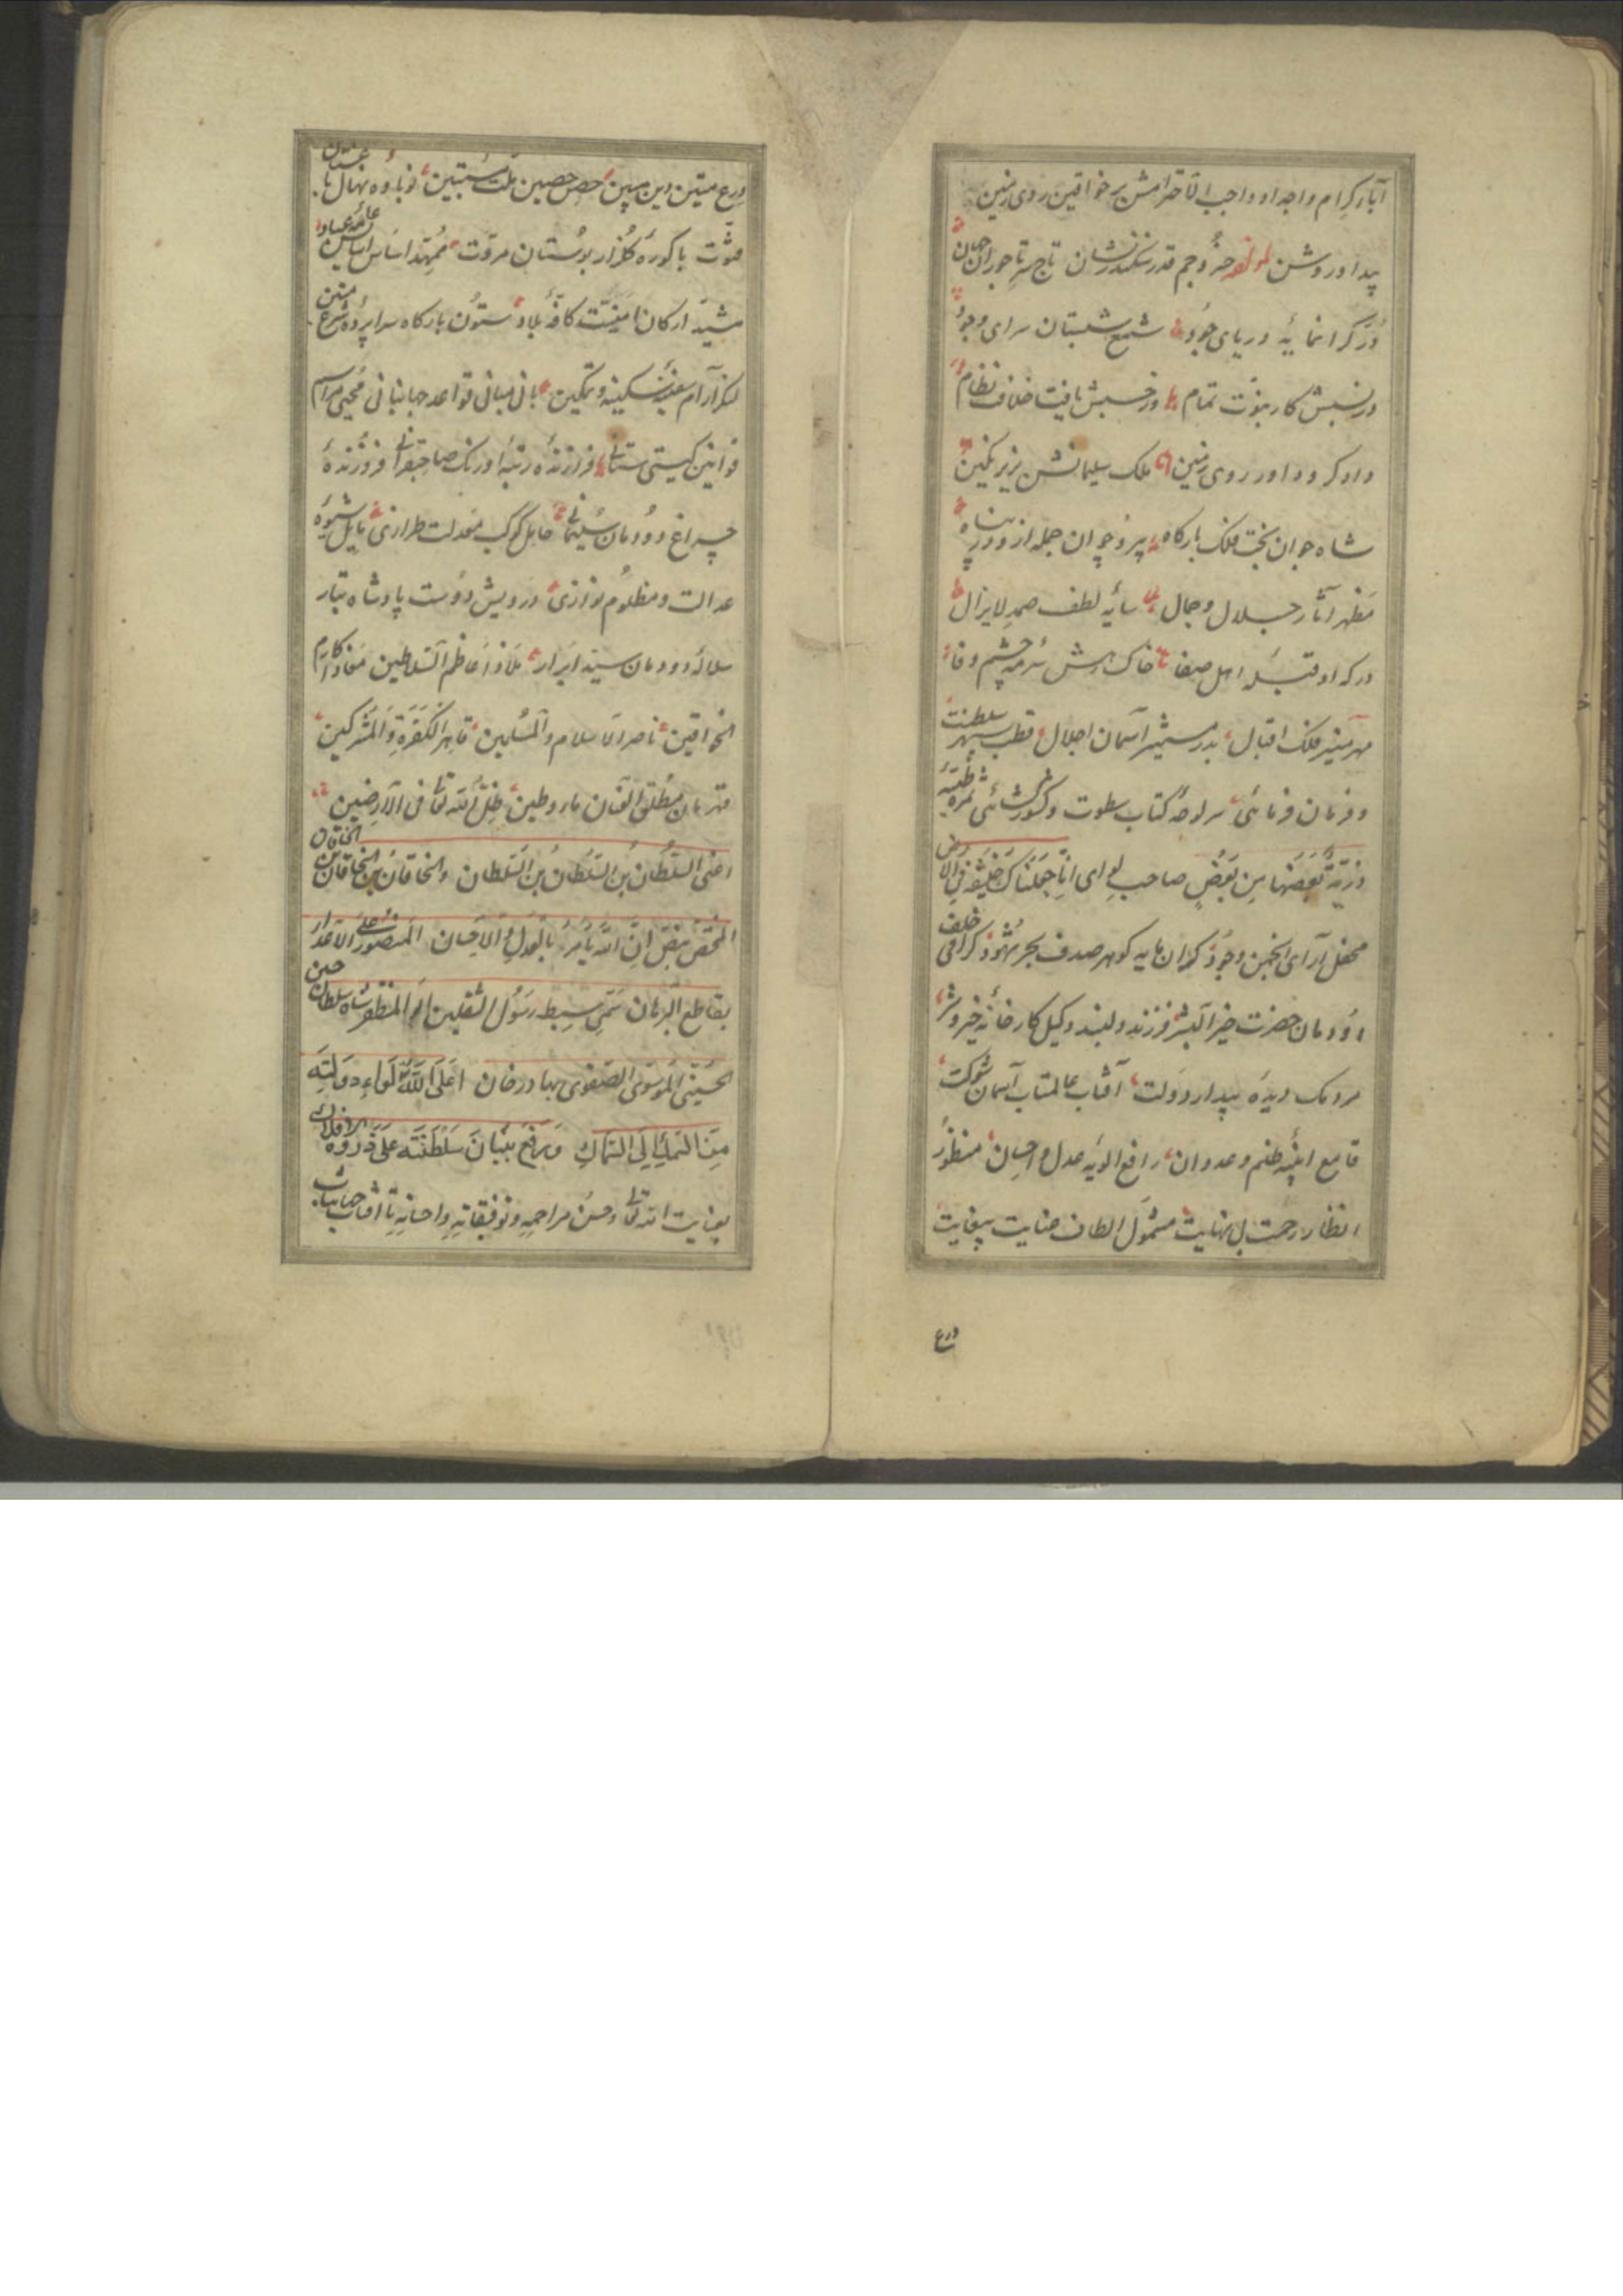 آباء کرام و اجداد واجب الاحترامش بر خواقین روی زمین
پیدا و روشن لمؤلفه خسرو جم قدر سکندر نشان تاج سر تاجوران جهان
دُرّ گرانمایهٔ دریای جود شمع شبستان سرای وجود
در نسبش کار نبوّت تمام وز حسبش یافت خلافت نظام
دادگر و داور روی زمین ملک سلیمانش بزیر نگین
شاه جوان بخت فلک بارگاه پیر و جوان جمله ازو در پناه
مظهر آثار جلال و جمال سایهٔ لطف صمد لایزال
درگه او قبلهٔ اهل صفا خاک رهش سرمهٔ چشم وفا
مهر منیر فلک اقبال بدر مستنیر آسمان اجلال قطب سپهر سلطنت
و فرمان فرمائی سر لوحهٔ کتاب سطوت و کشورگشائی ثمرهٔ طیبهٔ
ذریّة بعضها من بعض صاحب لوای انا جعلناک خلیفة فی الارض
محفل آرای انجمن وجود گران مایه گوهر صدف بحر شهود گرامی خلف
دودمان حضرت خیر البشر فرزند دلبند وکیل کارخانهٔ خیر و شر
مردمک دیدهٔ بیدار دولت آفتاب عالمتاب آسمان شوکت
قامع ابنیهٔ ظلم و عدوان رافع الویهٔ عدل و احسان منظور
انظار رحمت بی نهایت مشمول الطاف عنایت بیغایت
درع
درع متین دین مبین حصن حصین ملت مستبین نوباوه نهال بوستان
فتوّت باکورهٔ گلزار بوستان مروّت ممهّد اساس عامهٔ عباد
مشیّد ارکان امنیّت کافّهٔ بلاد ستون بارگاه سراپردهٔ شرع متین
لنگر آرام سفینهٔ سکینه و تمکین بانی مبانی قواعد جهانبانی محیی مراسم
قوانین گیتی ستانی فرازندهٔ رتبهٔ اورنگ صاحبقرانی فروزندهٔ
چراغ دودمان سلیمانی حامل کوکب معدلت طرازی مایل شیوهٔ
عدالت و مظلوم نوازی درویش دوست پادشاه تبار
سلالهٔ دودمان سید ابرار ملاذ اعاظم السلاطین مفاد اکارم
الخواقین ناصر الاسلام والمسلمین قاهر الکفرة والمشرکین
قهرمان مطلق العنان ماء و طین ظلّ الله تعالی فی الارضین
اعنی السلطان بن السلطان بن السلطان والخاقان بن الخاقان بن الخاقان
المختص بنص ان الله یأمر بالعدل والاحسان المنصور علی الاعداء
بقاطع البرهان سمیّ سبط رسول الثقلین ابو المظفر شاه سلطان حسین
الحسینی الموسوی الصفوی بهادر خان اعلی الله لواء دولته
من السمک الی السماک و رفع بنیان سلطنته علی ذروة الافلاک
بعنایت الله تعالی و حسن مراحمه و توفیقاته و احسانه تا آفتاب جهانتاب